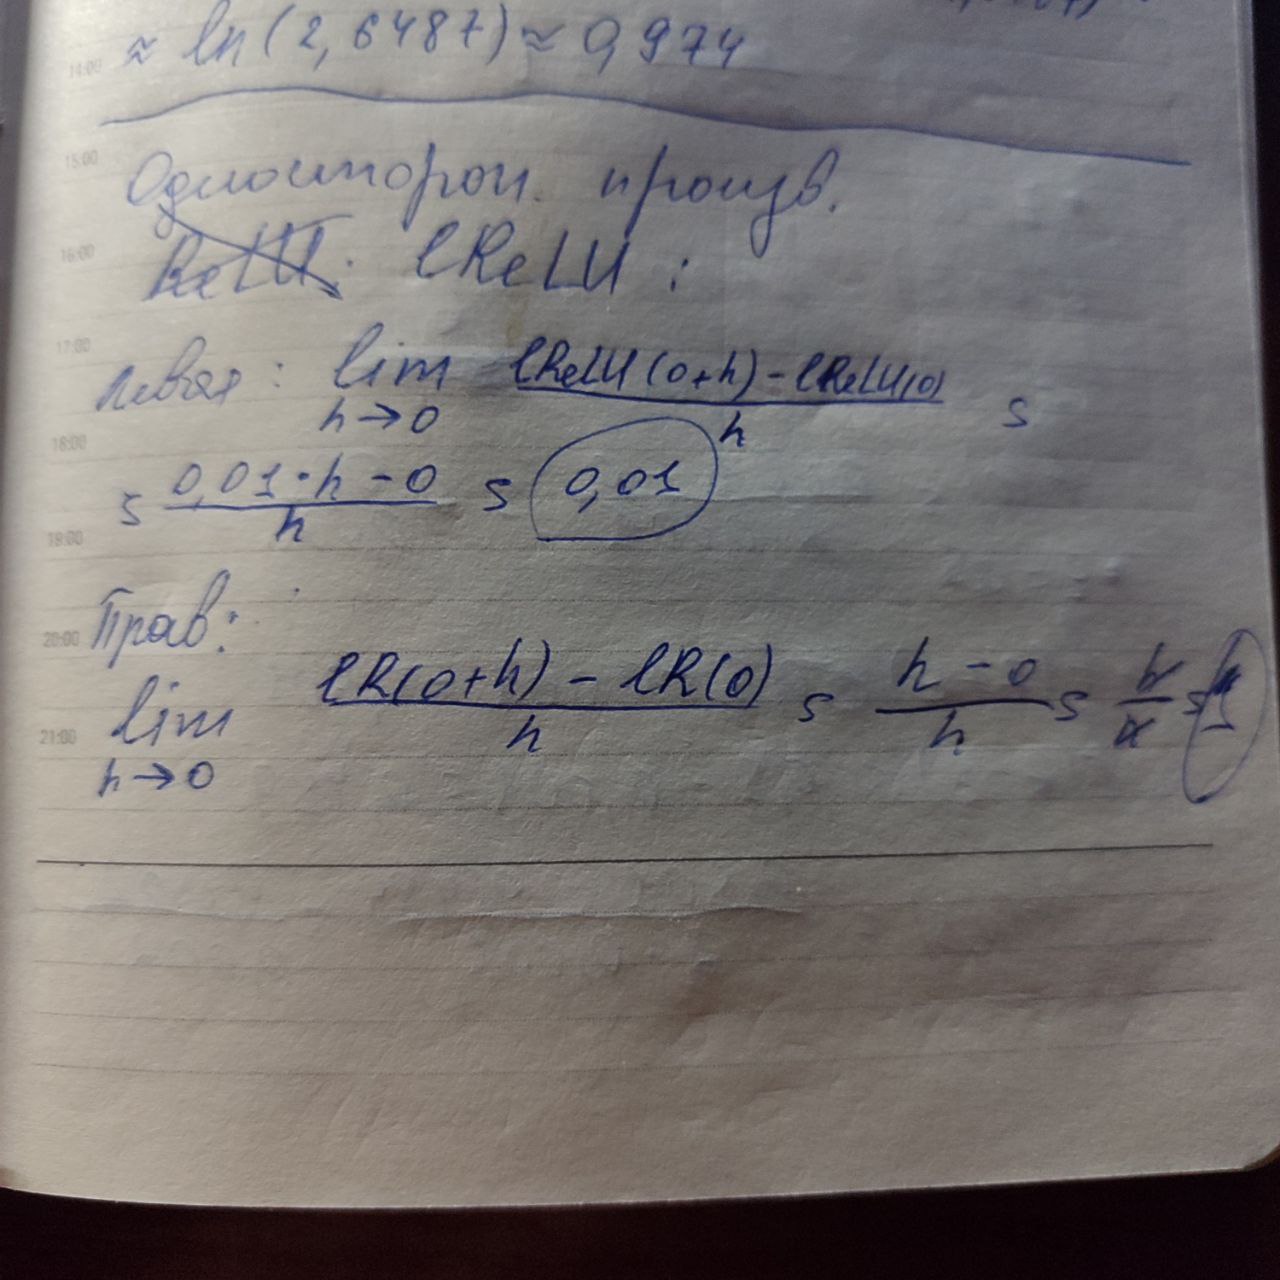 14:00 ≈ ln(2,6487) ≈ 0,974
15:00
Односторон. произв.
16:00 ReLU: lReLU:
17:00
левая: lim lReLU(0+h) - lReLU(0) =
h→0 h
18:00
= 0,01·h - 0 = 0,01
h
19:00
20:00 Прав:
lim lR(0+h) - lR(0) = h - 0 = h =
21:00 h h
h→0